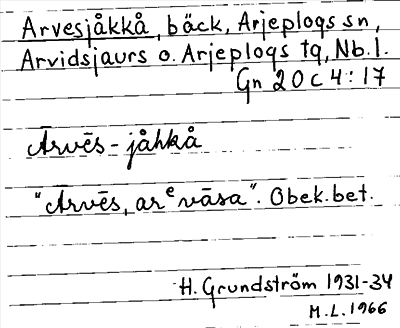 Arvesjåkkå, bäck, Arjeplogs sn,
Arvidsjaurs o. Arjeplogs tg, Nb. l.
Gn 20 C 4:17
Árvēs-jåhkå
"Árvēs, arᵉvāsa". Obek. bet.
H. Grundström 1931-34
M.L. 1966